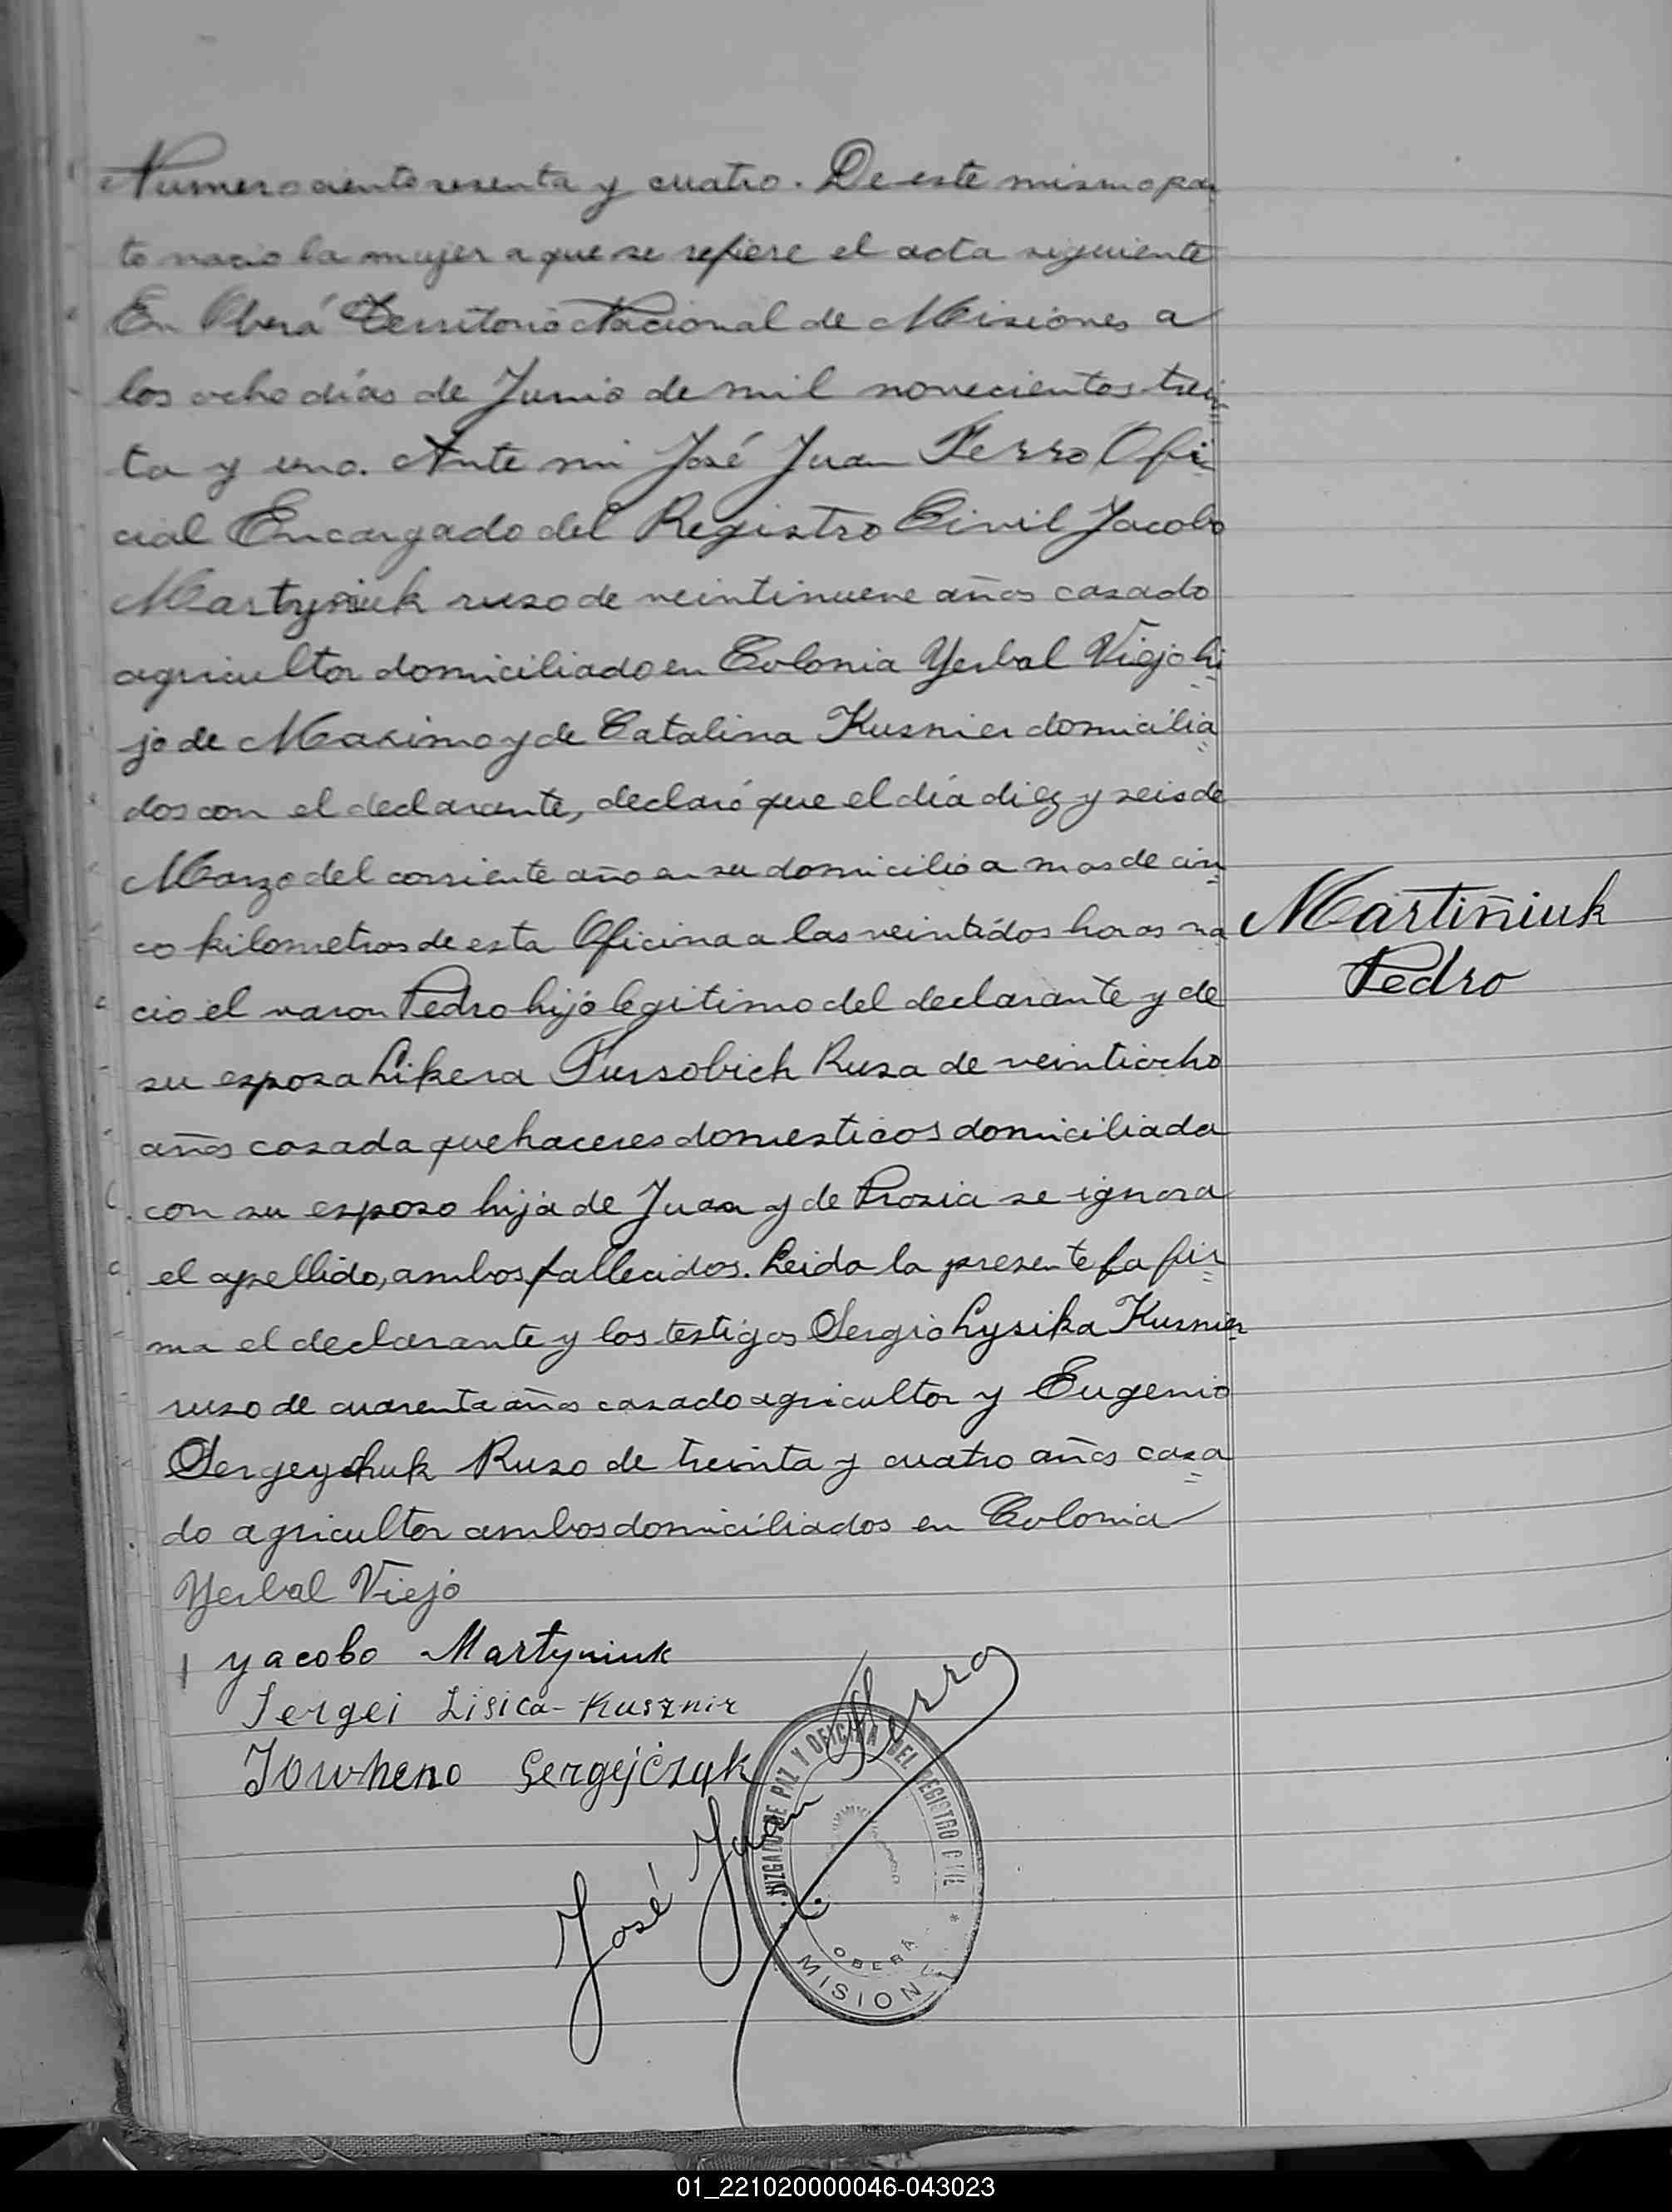 Numero ciento sesenta y cuatro. De este mismo par
to nacio la mujer a que se refiere el acta siguiente
En Oberá Territorio Nacional de Misiones a
los ocho días de Junio de mil novecientos trein
ta y uno. Ante mi José Juan Ferro Ofi
cial Encargado del Registro Civil Jacobo
Martyniuk ruso de veintinueve años casado
agricultor domiciliado en Colonia Yerbal Viejo hi
jo de Maximo y de Catalina Kusnier domicilia
dos con el declarante, declaró que el día diez y seis de
Marzo del corriente año en su domicilio a mas de cin
co kilometros de esta Oficina a las veintidós horas na
Martiñiuk
Pedro
ció el varon Pedro hijo legitimo del declarante y de
su esposa Likera Fursobich Rusa de veintiocho
años casada quehaceres domesticos domiciliada
con su esposo hija de Juan y de Prosia se ignora
el apellido, ambos fallecidos. Leida la presente la fir
ma el declarante y los testigos Sergio Lysika Kusnier
ruso de cuarenta años casado agricultor y Eugenio
Sergeychuk Ruso de treinta y cuatro años casa
do agricultor ambos domiciliados en Colonia
Yerbal Viejo
yacobo Martyniuk
Sergei Lisica-Kusznir
Jowheno Sergejczuk
José Juan Ferro
JUZGADO DE PAZ Y OFICINA DEL REGISTRO CIVIL
OBERÁ
MISIONES
01_221020000046-043023